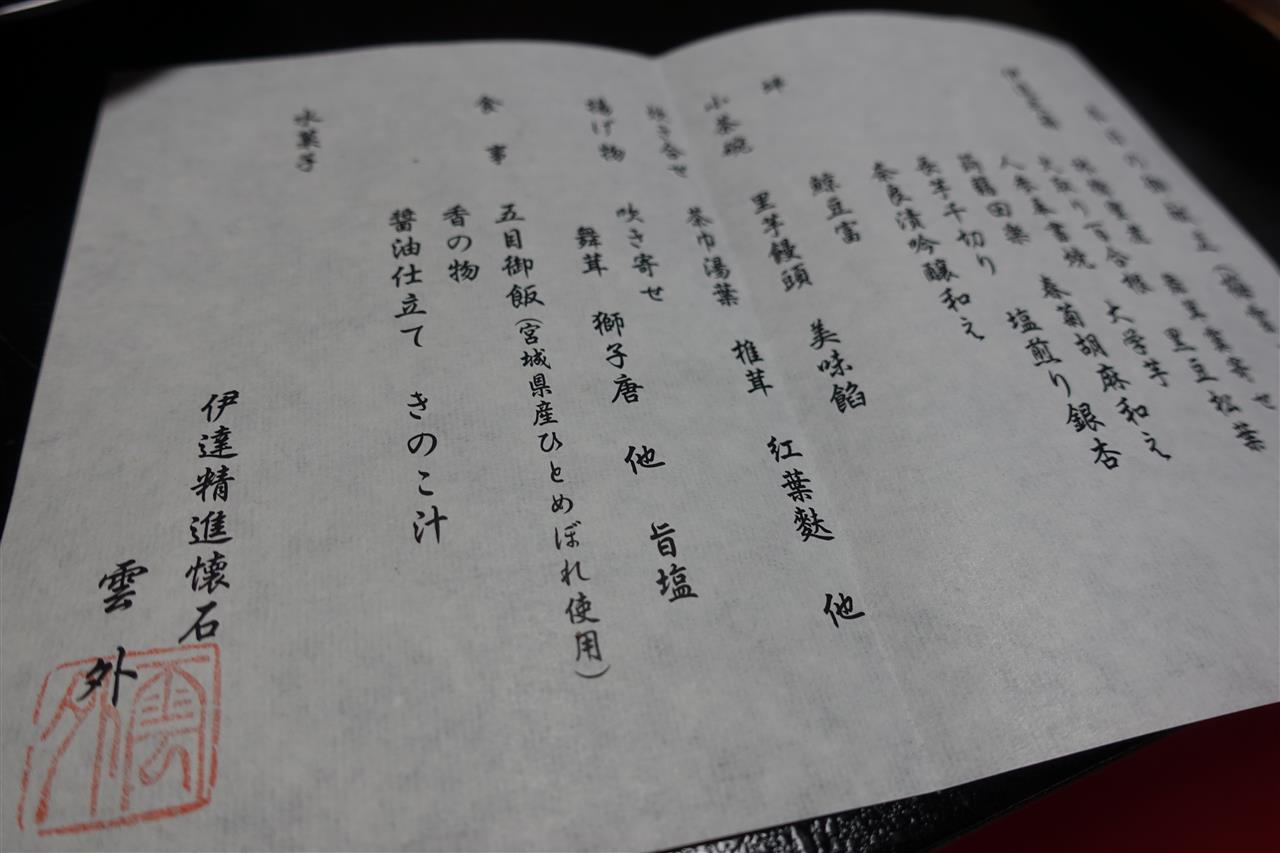 本日の御献立
百合根 黒豆松葉
人参奉書焼 大学芋
蒟蒻田楽 春菊胡麻和え
長芋千切り 塩煎り銀杏
奈良漬吟醸和え
小茶碗 里芋饅頭 美味餡
炊き合せ 茶巾湯葉 椎茸 紅葉麩 他
吹き寄せ
揚げ物 舞茸 獅子唐 他 旨塩
食事 五目御飯(宮城県産ひとめぼれ使用)
香の物
醤油仕立て きのこ汁
水菓子
伊達精進懐石
雲外